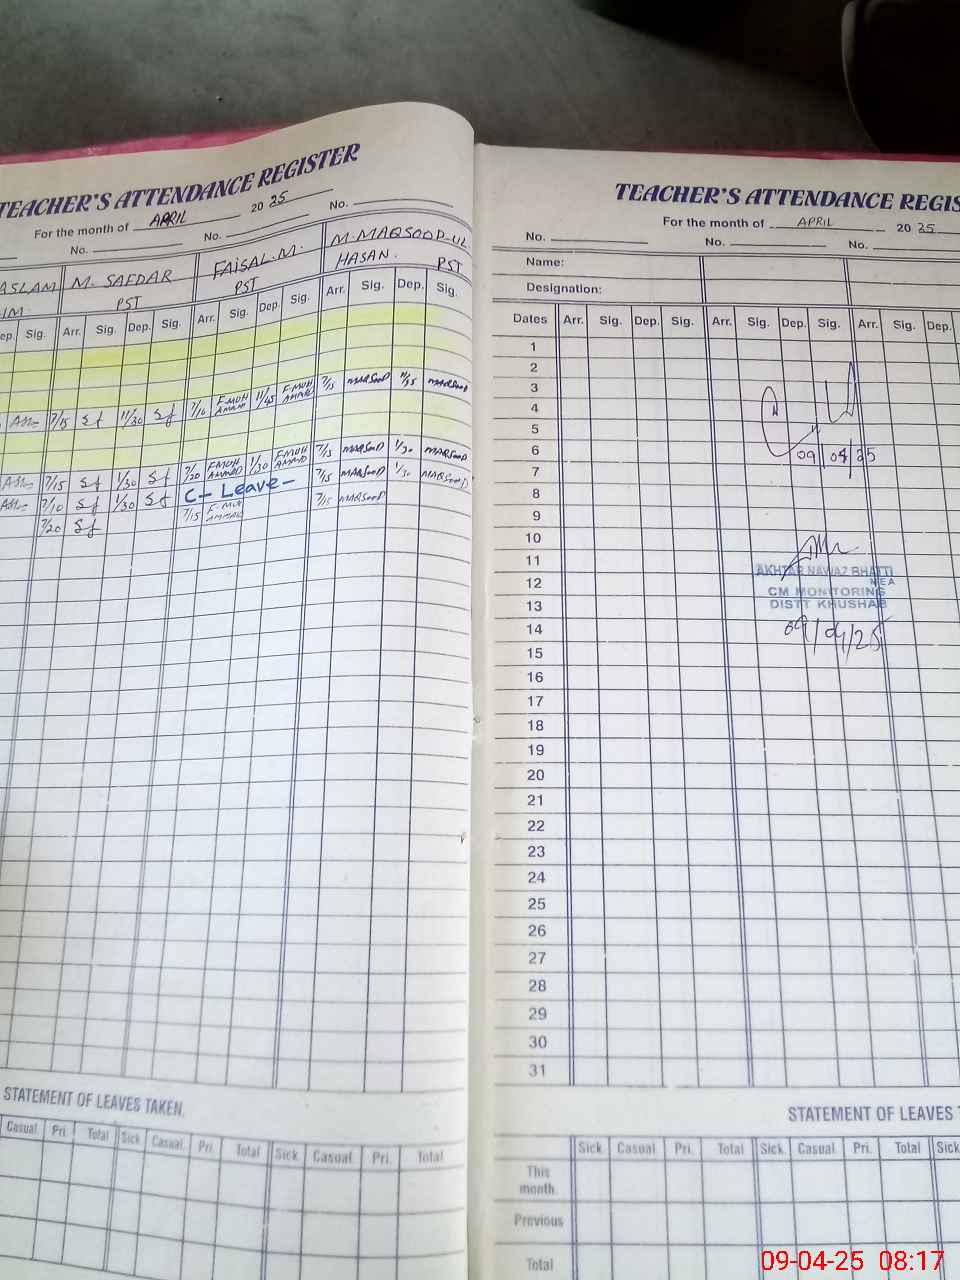 TEACHER'S ATTENDANCE REGISTER
For the month of APRIL 2025 No.
No. No.
ASLAM M. SAFDAR FAISAL.M. M.MAQSOOD-UL
PST PST HASAN. PST
ep. Sig. Arr. Sig. Dep. Sig. Arr. Sig. Dep. Sig. Arr. Sig. Dep. Sig.
7/15 Sf 11/30 Sf 7/10 F.MUH AMMAD 11/45 F.MUH AMMAD 7/15 MAQSOOD 11/35 MAQSOOD
7/15 Sf 1/30 Sf 7/20 F.MUH AMMAD 1/30 F.MUH AMMAD 7/15 MAQSOOD 1/30 MAQSOOD
7/10 Sf 1/30 Sf C- Leave- 7/15 MAQSOOD 1/30 MAQSOOD
7/20 Sf 7/15 F.MUH AMMAD 7/15 MAQSOOD
STATEMENT OF LEAVES TAKEN.
Casual. Pri. Total Sick. Casual. Pri. Total Sick. Casual. Pri. Total
TEACHER'S ATTENDANCE REGIS
For the month of APRIL 2025
No. No. No.
Name:
Designation:
Dates Arr. Sig. Dep. Sig. Arr. Sig. Dep. Sig. Arr. Sig. Dep.
1
2
3
4
5
6
09/04/25
7
8
9
10
11
AKHTAR NAWAZ BHATTI
MEA
12
CM MONITORING
13
DISTT KHUSHAB
14
09/04/25
15
16
17
18
19
20
21
22
23
24
25
26
27
28
29
30
31
STATEMENT OF LEAVES
Sick. Casual. Pri. Total Sick. Casual. Pri. Total Sick
This
month.
Previous
Total
09-04-25 08:17